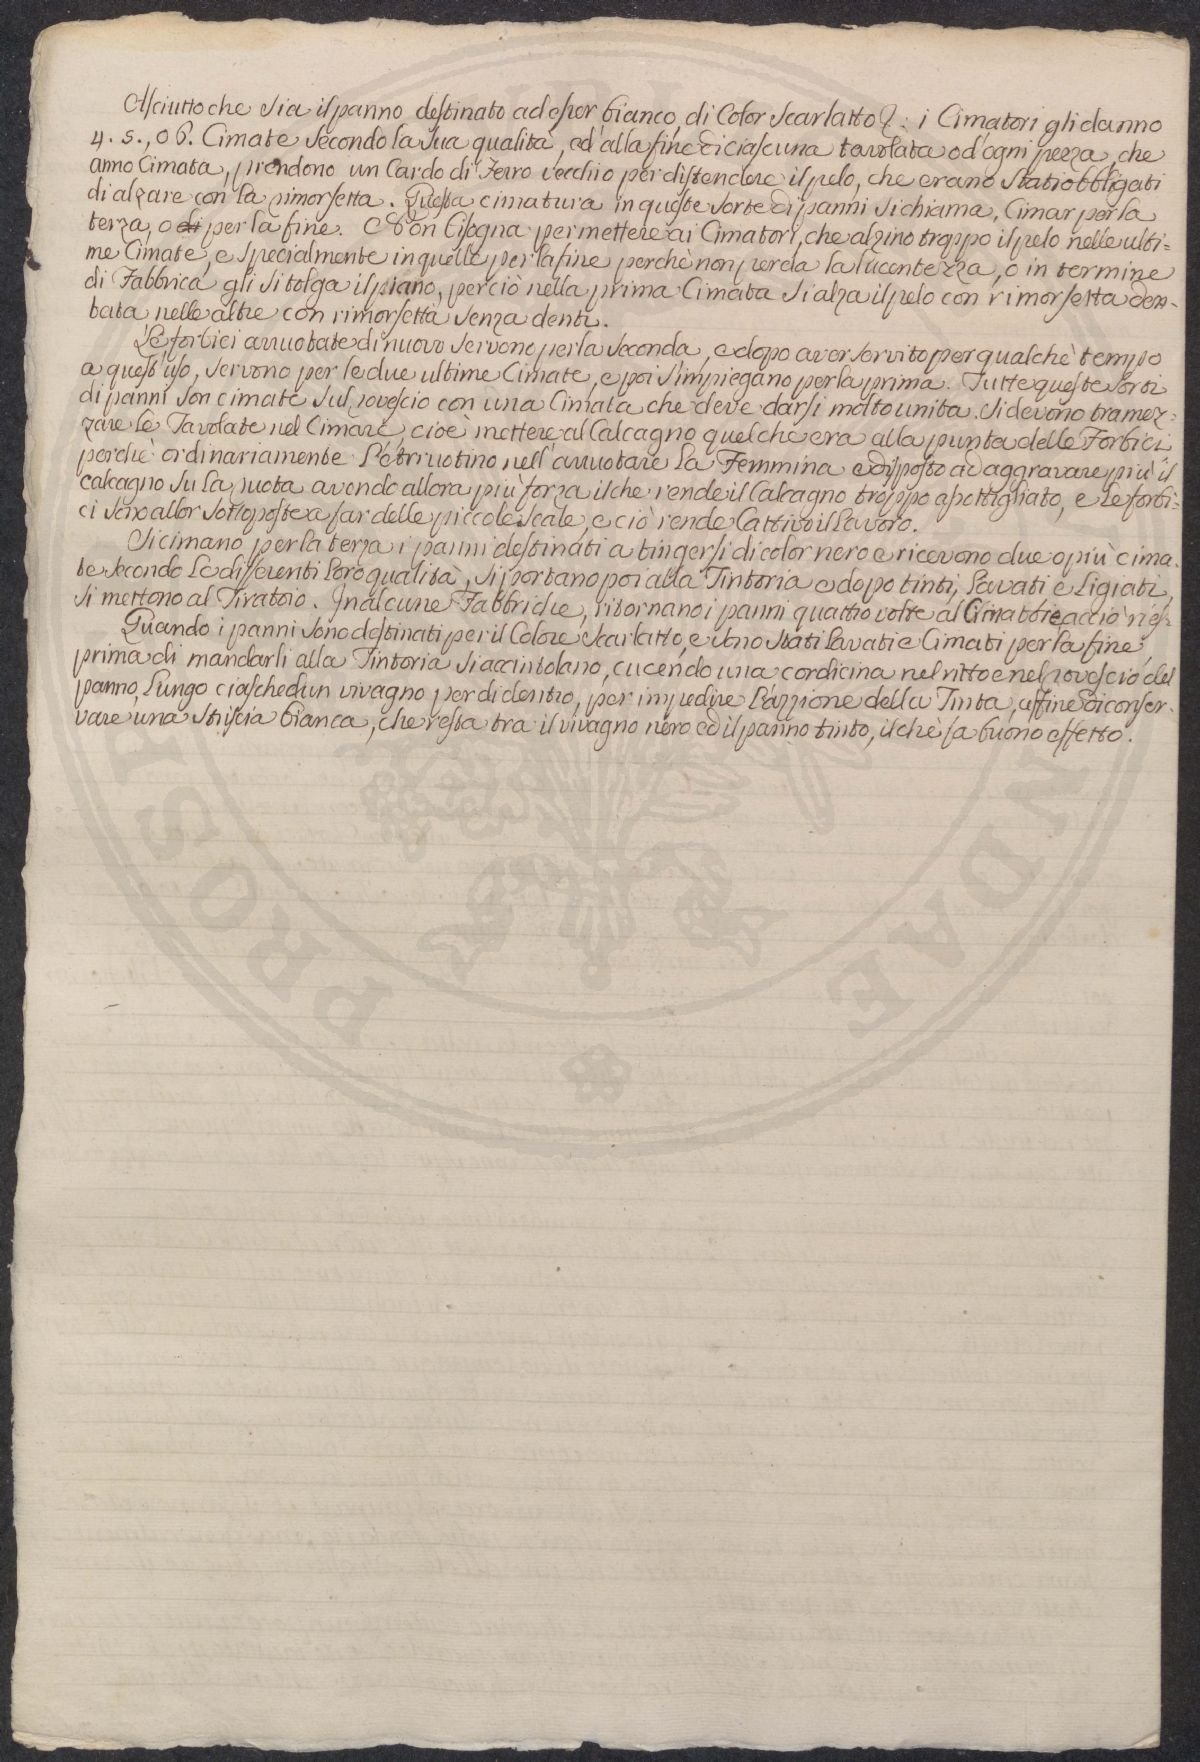 Asciutto che sia il panno destinato ad esser bianco, di Color Scarlatto &: i Cimatori gli danno
4. 5., o 6. Cimate secondo la sua qualità, ed alla fine di ciascuna tavolata o d'ogni pezza, che
anno Cimata, prendono un Cardo di Ferro vecchio per distendere il pelo, che erano stati obbligati
di alzare con la rimorsetta. Questa cimatura in queste sorte di panni si chiama, Cimar per la
terza, o per la fine. Non bisogna permettere ai Cimatori, che alzino troppo il pelo nelle ulti=
me Cimate, e specialmente in quelle per la fine perchè non perda la lucentezza, o in termine
di Fabbrica gli si tolga il piano, perciò nella prima Cimata si alza il pelo con rimorsetta den-
tata nelle altre con rimorsetta senza denti.
Le forbici arruotate di nuovo servono per la seconda, e dopo aver servito per qualche tempo
a quest'uso, servono per le due ultime Cimate, e poi s'impiegano per la prima. Tutte queste sorti
di panni son cimate sul rovescio con una Cimata che deve darsi molto unita. Si devono tramez=
zare le Tavolate nel Cimare, cioè mettere al Calcagno quel che era alla punta delle Forbici
perchè ordinariamente l'Arruotino nell'arruotare la Femmina è disposto ad aggravare più il
calcagno su la ruota avendo allora più forza il che rende il Calcagno troppo assottigliato, e le forbi=
ci sono allor sottoposte a far delle piccole scale, e ciò rende Cattivo il lavoro.
Si cimano per la terza i panni destinati a tingersi di color nero e ricevono due o più cima-
te secondo le differenti loro qualità, si portano poi alla Tintoria e dopo tinti, lavati e ligiati,
si mettono al Tiratoio. In alcune Fabbriche, ritornano i panni quattro volte al
Quando i panni sono destinati per il Colore Scarlatto, e sono stati lavati e Cimati per la fine,
prima di mandarli alla Tintoria si accintolano, cucendo una cordicina nel ritto e nel rovescio del
panno, lungo ciaschedun vivagno per di dentro, per impedire l'azzione della Tinta, affine di conser-
vare una striscia bianca, che resta tra il vivagno nero ed il panno tinto, il chè fa buono effetto.